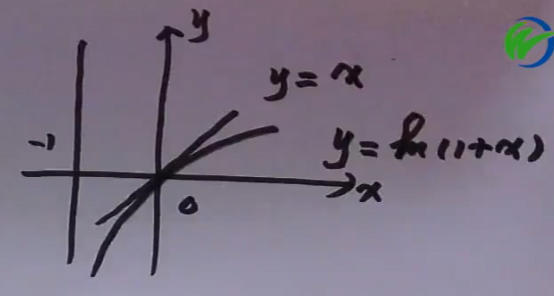 y
y = x
-1
y = ln(1+x)
x
0